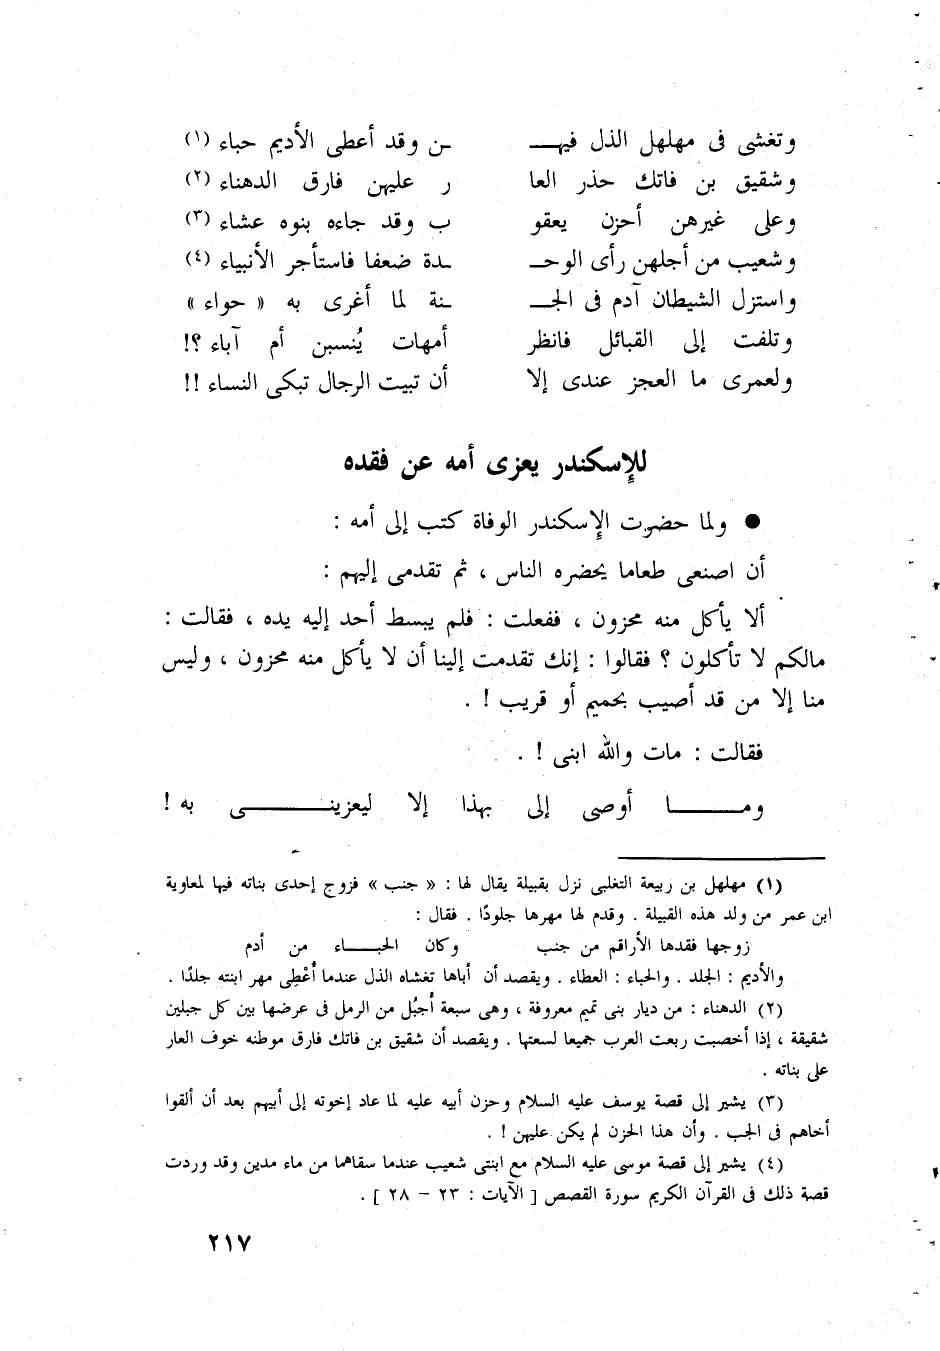 وتغشى فى مهلهل الذل فيهـ ـن وقد أعطى الأديم حباء (١)
وشقيق بن فاتك حذر العا ر عليهن فارق الدهناء (٢)
وعلى غيرهن أحزن يعقو ب وقد جاءه بنوه عشاء (٣)
وشعيب من أجلهن رأى الوحـ ـدة ضعفا فاستأجر الأنبياء (٤)
واستزل الشيطان آدم فى الجـ ـنة لما أغرى به « حواء »
وتلفت إلى القبائل فانظر أمهات يُنسبن أم آباء ؟!
ولعمرى ما العجز عندى إلا أن تبيت الرجال تبكى النساء !!
للإسكندر يعزى أمه عن فقده
● ولما حضرت الإسكندر الوفاة كتب إلى أمه :
أن اصنعى طعاما يحضره الناس ، ثم تقدمى إليهم :
ألا يأكل منه محزون ، ففعلت : فلم يبسط أحد إليه يده ، فقالت :
مالكم لا تأكلون ؟ فقالوا : إنك تقدمت إلينا أن لا يأكل منه محزون ، وليس
منا إلا من قد أصيب بحميم أو قريب ! .
فقالت : مات والله ابنى ! .
ومـــا أوصى إلى بهذا إلا ليعزينـــى به !
(١) مهلهل بن ربيعة التغلبى نزل بقبيلة يقال لها : « جنب » فزوج إحدى بناته فيها لمعاوية
ابن عمر من ولد هذه القبيلة . وقدم لها مهرها جلودًا . فقال :
زوجها فقدها الأراقم من جنب وكان الحبـــاء من أدم
والأديم : الجلد . والحباء : العطاء . ويقصد أن أباها تغشاه الذل عندما أُعْطِى مهر ابنته جلدًا .
(٢) الدهناء : من ديار بنى تميم معروفة ، وهى سبعة أجبُل من الرمل فى عرضها بين كل جبلين
شقيقة ، إذا أخصبت ربعت العرب جميعا لسعتها . ويقصد أن شقيق بن فاتك فارق موطنه خوف العار
على بناته .
(٣) يشير إلى قصة يوسف عليه السلام وحزن أبيه عليه لما عاد إخوته إلى أبيهم بعد أن ألقوا
أخاهم فى الجب . وأن هذا الحزن لم يكن عليهن ! .
(٤) يشير إلى قصة موسى عليه السلام مع ابنتى شعيب عندما سقاهما من ماء مدين وقد وردت
قصة ذلك فى القرآن الكريم سورة القصص [ الآيات : ٢٣ – ٢٨ ] .
٢١٧